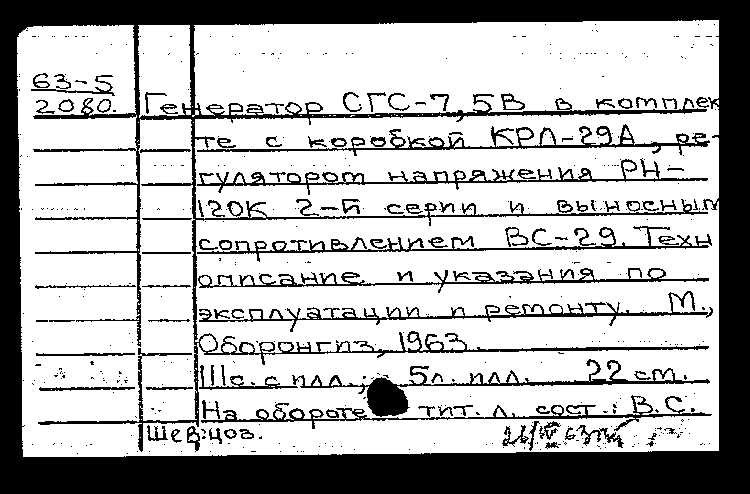 63-5
2080. Генератор СГС-7,5В в комплек
те с коробкой КРЛ-29А, ре-
гулятором напряжения РН-
120К 2-й серии и выносным
сопротивлением ВС-29. Техн
описание и указания по
эксплуатации и ремонту. М.,
Оборонгиз, 1963.
111с. с илл.; 5л. илл. 22 см.
На обороте тит. л. сост.: В.С.
Шевцов.